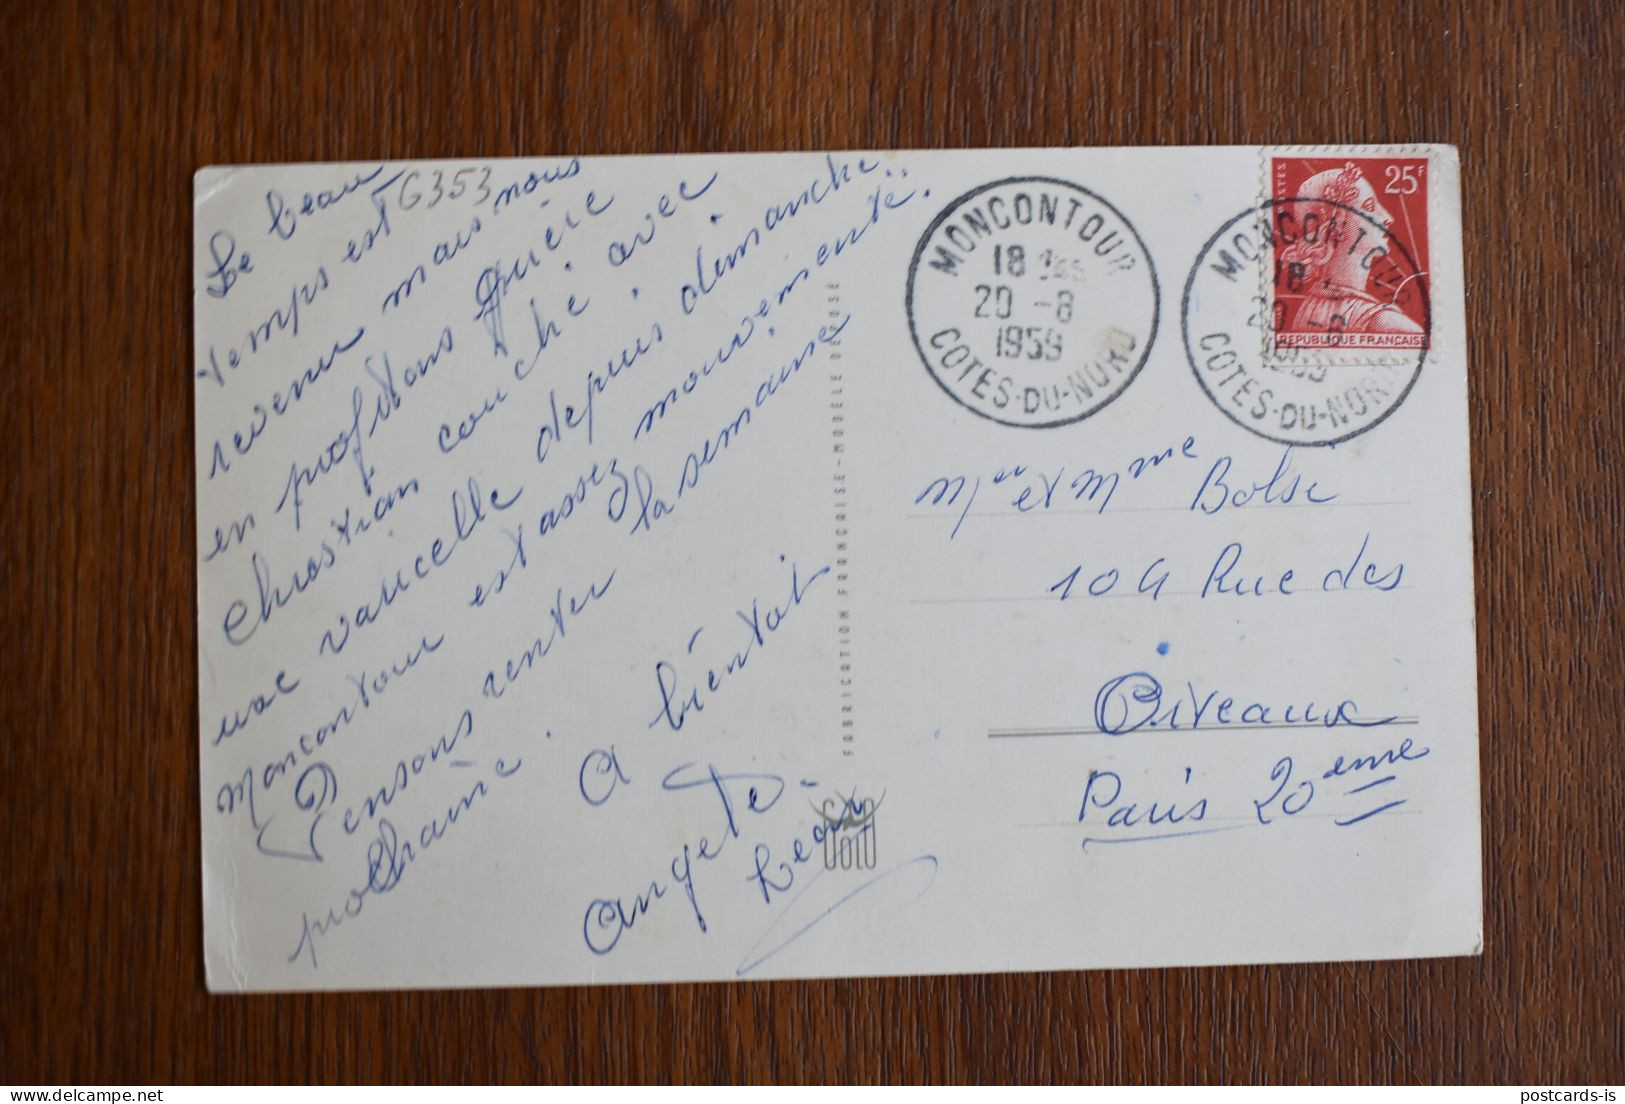 Le beau
temps est G353
revenu mais nous
en profitons guère
christian couché avec
une varicelle depuis dimanche..
Moncontour est assez mouvementé.
Pensons renter la semaine
prochaine.
A bientot
Angele.
Léon
FABRICATION FRANÇAISE - MODELE DEPOSE
MONCONTOUR
18
20 -8
1959
COTES-DU-NORD
MONCONTOUR
18
20 -8
1959
COTES-DU-NORD
POSTES
25F
REPUBLIQUE FRANÇAISE
Mer et Mme Bolse
104 Rue des
Piteaux
Paris 20eme
postcards-is